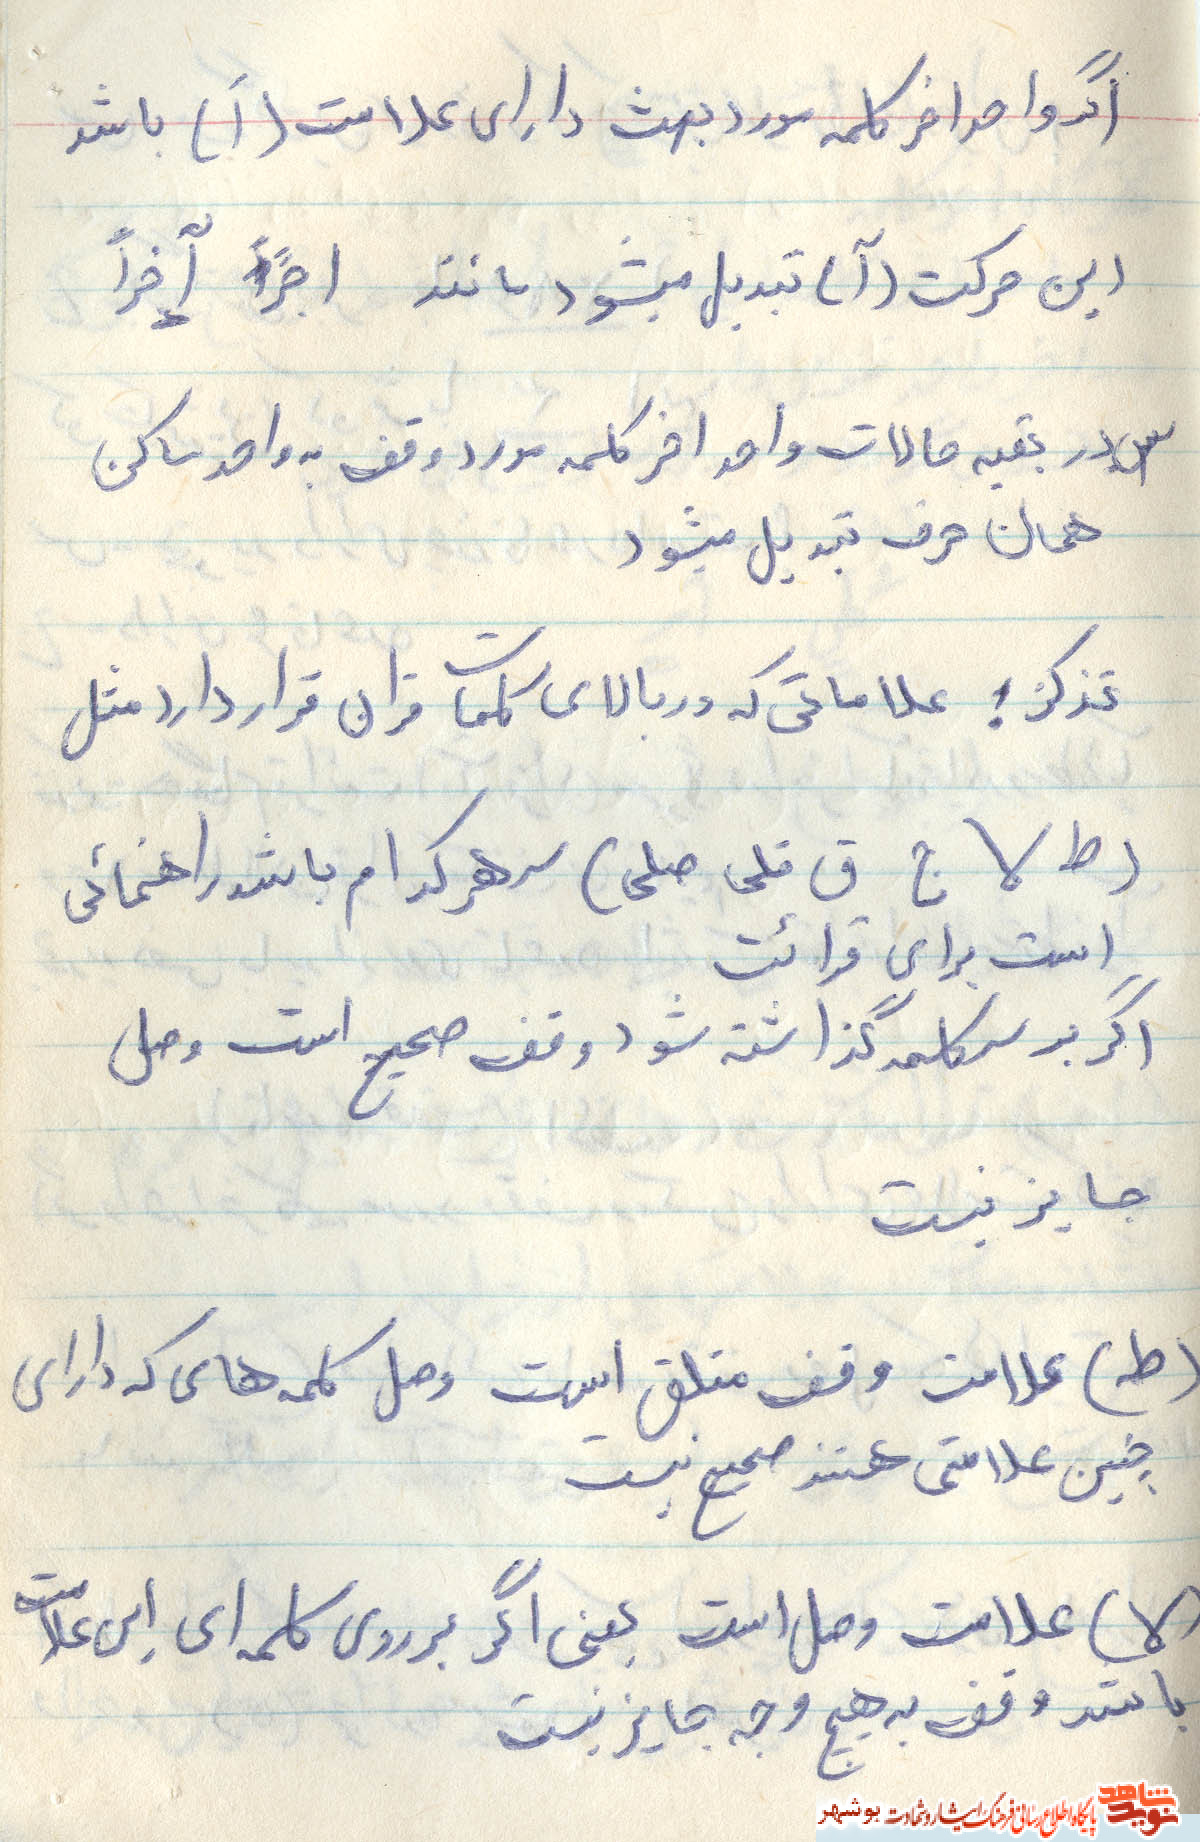 اگر واحد اخر کلمه مورد بحث دارای علامت (اً) باشد
این حرکت (آ) تبدیل میشود مانند اجراً آخِراً
۳ در بقیه حالات واحد اخر کلمه مورد وقف به واحد ساکن
همان حرف تبدیل میشود
تذکر: علاماتی که در بالای کلمات قران قرار دارد مثل
(ط لا ج ق قلی صلی) سر هر کدام باشد راهنمائی
است برای قرائت
اگر بر سر کلمه گذاشته شود وقف صحیح است وصل
جایز نیست
(ط) علامت وقف متلق است وصل کلمه های که دارای
چنین علامتی هستند صحیح نیست
(لا) علامت وصل است یعنی اگر بر روی کلمه ای این علامت
باشد وقف به هیچ وجه جایز نیست
نوید شاهد پایگاه اطلاع رسانی فرهنگ ایثار و شهادت بوشهر